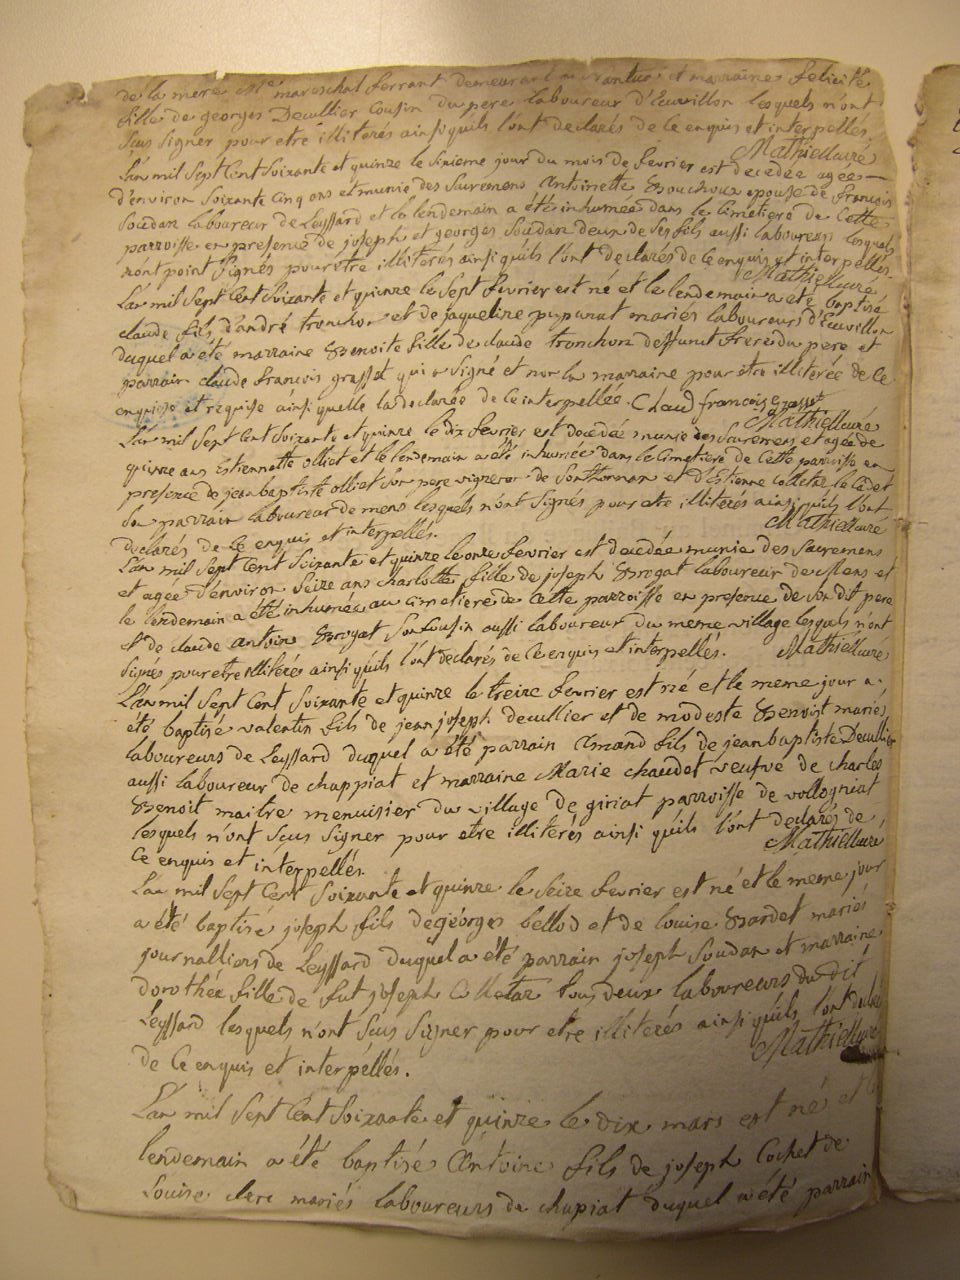 de la mere Me mareschal ferrant demeurant a Nantua et marraine felicité
fille de georges Decullier Cousin du pere laboureur d'Euvillon lesquels n'ont
sçus signer pour etre illiterés ainsi qu'ils l'ont declarés de ce enquis et interpellés.
Mathieu curé
L'an mil sept Cent soixante et quinze le sixieme jour du mois de fevrier est decedée agée
d'environ soixante cinq ans et munie des sacremens Antoinette Bouchoux epouse de françois
Soudan laboureur de Leyssard et le lendemain a étés inhumée dans le cimetiere de cette
parroisse en presence de joseph et georges Soudan deux de ses fils aussi laboureurs lesquels
n'ont point signés pour etre illiterés ainsi qu'ils l'ont declarés de ce enquis et interpellés.
Mathieu curé
L'an mil sept Cent soixante et quinze le sept fevrier est né et le lendemain a été baptisé
claude fils d'andré tronchon et de jaqueline pupunat mariés laboureurs d'Euvillon
duquel a été marraine Benoite fille de claude tronchon deffunt frere du pere et
parrain claude françois grasset qui a signé et non la marraine pour etre illiterée de ce
enquise et requise ainsi quelle la declarée de ce interpellée. Claud françois Grasset
Mathieu curé
L'an mil sept Cent soixante et quinze le dix fevrier est decedée munie des sacremens et agée de
quinze ans Estiennette olliat et le lendemain a été inhumée dans le cimetiere de cette parroisse en
presence de jean baptiste olliat son pere vigneron de Sonthonnax et d'Estienne colletaz le cadet
son parrain laboureur de mens lesquels n'ont signés pour etre illiterés ainsi qu'ils l'ont
declarés de ce enquis et interpellés. Mathieu curé
L'an mil sept Cent soixante et quinze le onze fevrier est decedée munie des sacremens
et agée d'environ seize ans charlotte fille de joseph Brogat laboureur de Mens et
le lendemain a été inhumée au cimetiere de cette parroisse en presence de son dit pere
et de claude antoine Brogat son Cousin aussi laboureur du meme village lesquels n'ont
signés pour etre illiterés ainsi qu'ils l'ont declarés de ce enquis et interpellés. Mathieu curé
L'an mil sept Cent soixante et quinze le treize fevrier est né et le meme jour a
été baptisé valentin fils de jean joseph decullier et de modeste Benoist mariés
laboureurs de Leyssard duquel a été parrain Amand fils de jean baptiste Decullier
aussi laboureur de chappiat et marraine Marie chaudet veufve de charles
Benoit maitre menuisier du village de giriat parroisse de vollogniat
lesquels n'ont sçus signer pour etre illiterés ainsi qu'ils l'ont declarés de
ce enquis et interpellés. Mathieu curé
L'an mil sept Cent soixante et quinze le seize fevrier est né et le meme jour
a été baptisé joseph fils de georges bellod et de louise Bardet mariés
journalliers de Leyssard duquel a été parrain joseph Soudan et marraine
dorothée fille de fut joseph Colletaz tous deux laboureurs du dit
Leyssard lesquels n'ont sçus signer pour etre illiterés ainsi qu'ils l'ont declarés
de ce enquis et interpellés. Mathieu curé
L'an mil sept Cent soixante et quinze le dix mars est né et le
lendemain a été baptisé Antoine fils de joseph Cochet de
Louise clerc mariés laboureurs de chapiat duquel a été parrain